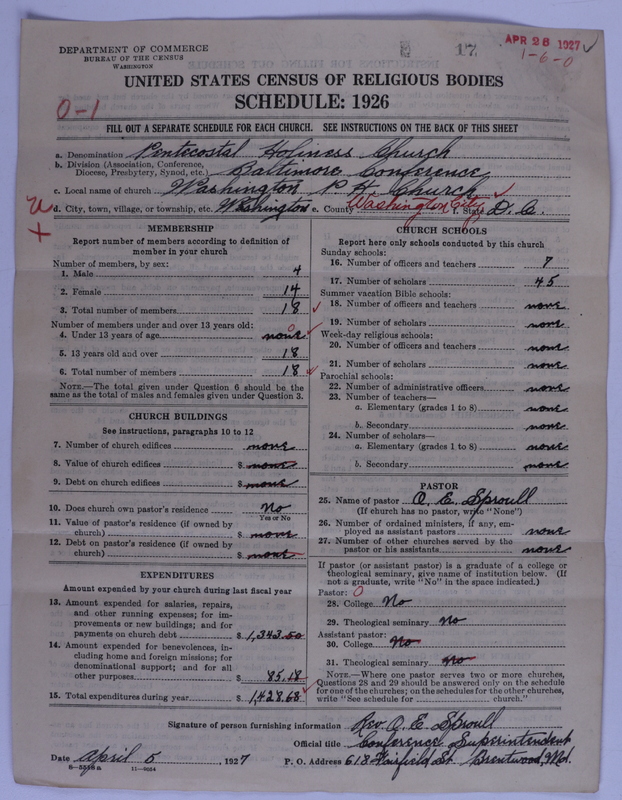 DEPARTMENT OF COMMERCE
BUREAU OF THE CENSUS
WASHINGTON
17
APR 28 1927
1-6-0
UNITED STATES CENSUS OF RELIGIOUS BODIES
SCHEDULE: 1926
0-1
FILL OUT A SEPARATE SCHEDULE FOR EACH CHURCH. SEE INSTRUCTIONS ON THE BACK OF THIS SHEET
a. Denomination Pentecostal Holiness Church
b. Division (Association, Conference, Diocese, Presbytery, Synod, etc.) Baltimore Conference
c. Local name of church Washington P. H. Church
d. City, town, village, or township, etc. Washington e. County Washington City f. State D. C.
MEMBERSHIP
Report number of members according to definition of
member in your church
Number of members, by sex:
1. Male 4
2. Female 14
3. Total number of members 18
Number of members under and over 13 years old:
4. Under 13 years of age none 0
5. 13 years old and over 18
6. Total number of members 18
NOTE.—The total given under Question 6 should be
same as the total of males and females given under Question 3.
CHURCH BUILDINGS
See instructions, paragraphs 10 to 12
7. Number of church edifices none
8. Value of church edifices $ none
9. Debt on church edifices $ none
10. Does church own pastor's residence No
Yes or No
11. Value of pastor's residence (if owned by
church) $ none
12. Debt on pastor's residence (if owned by
church) $ none
EXPENDITURES
Amount expended by your church during last fiscal year
13. Amount expended for salaries, repairs,
and other running expenses; for im-
provements or new buildings; and for
payments on church debt $ 1,343.50
14. Amount expended for benevolences, in-
cluding home and foreign missions; for
denominational support; and for all
other purposes $ 85.18
15. Total expenditures during year $ 1,428.68
CHURCH SCHOOLS
Report here only schools conducted by this church
Sunday schools:
16. Number of officers and teachers 7
17. Number of scholars 45
Summer vacation Bible schools:
18. Number of officers and teachers none
19. Number of scholars none
Week-day religious schools:
20. Number of officers and teachers none
21. Number of scholars none
Parochial schools:
22. Number of administrative officers none
23. Number of teachers—
a. Elementary (grades 1 to 8) none
b. Secondary none
24. Number of scholars—
a. Elementary (grades 1 to 8) none
b. Secondary none
PASTOR
25. Name of pastor O. E. Sproull
(If church has no pastor, write "None")
26. Number of ordained ministers, if any, em-
ployed as assistant pastors none
27. Number of other churches served by the
pastor or his assistants none
If pastor (or assistant pastor) is a graduate of a college or
theological seminary, give name of institution below. (If
not a graduate, write "No" in the space indicated.)
Pastor: 0
28. College No
29. Theological seminary No
Assistant pastor:
30. College No
31. Theological seminary No
NOTE.—Where one pastor serves two or more churches,
Questions 28 and 29 should be answered only on the schedule
for one of the churches; on the schedules for the other churches,
write "See schedule for church."
Signature of person furnishing information Rev. O. E. Sproull
Official title Conference Superintendent
Date April 5, 1927 P. O. Address 618 Fairfield St. Brentwood, Md.